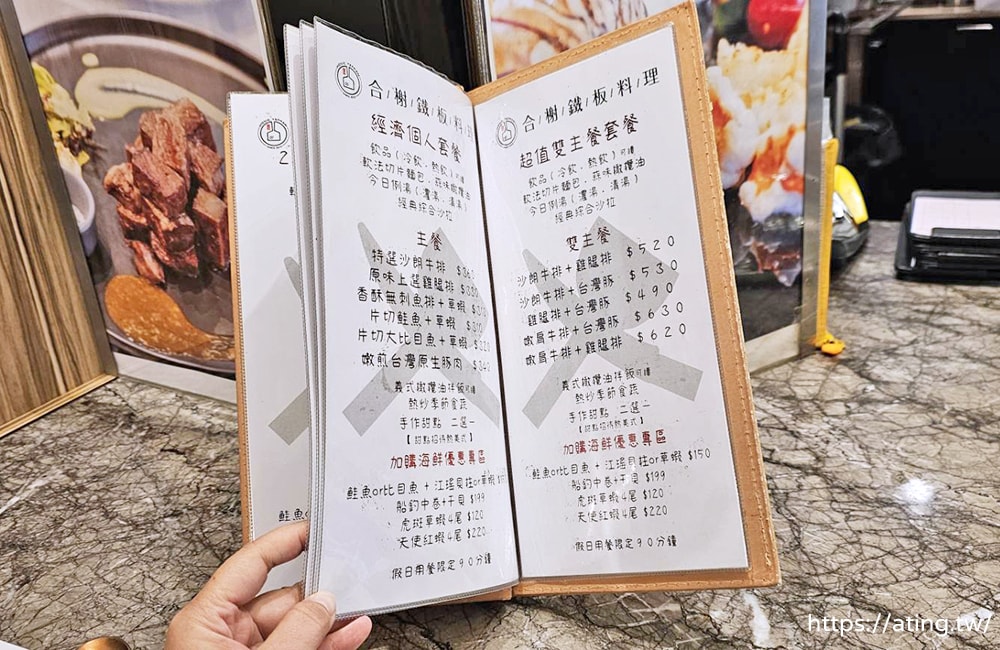 合/榭/鐵/板/料/理
經濟個人套餐
飲品(冷飲、熱飲)可續
軟法切片麵包、蒜味橄欖油
今日例湯(濃湯、清湯)
經典綜合沙拉
主餐
特選沙朗牛排
原味上選雞腿排
香酥無刺魚排+草蝦
片切鮭魚+草蝦
片切大比目魚+草蝦 $320
嫩煎台灣原生豚肉
義式橄欖油拌飯可續
熱炒季節食蔬
手作甜點 二選一
【甜點招待熱美式】
加購海鮮優惠專區
鮭魚or比目魚 + 江瑤貝柱or草蝦
船釣中卷+干貝 $199
虎斑草蝦4尾 $120
天使紅蝦4尾 $220
假日用餐限定90分鐘
合/榭/鐵/板/料/理
超值雙主餐套餐
飲品(冷飲、熱飲)可續
軟法切片麵包、蒜味橄欖油
今日例湯(濃湯、清湯)
經典綜合沙拉
雙主餐
沙朗牛排+雞腿排 $520
沙朗牛排+台灣豚 $530
雞腿排+台灣豚 $490
嫩肩牛排+台灣豚 $630
嫩肩牛排+雞腿排 $620
義式橄欖油拌飯可續
熱炒季節食蔬
手作甜點 二選一
【甜點招待熱美式】
加購海鮮優惠專區
鮭魚or比目魚 + 江瑤貝柱or草蝦 $150
船釣中卷+干貝 $199
虎斑草蝦4尾 $120
天使紅蝦4尾 $220
假日用餐限定90分鐘
2
鮭魚
https://ating.tw/